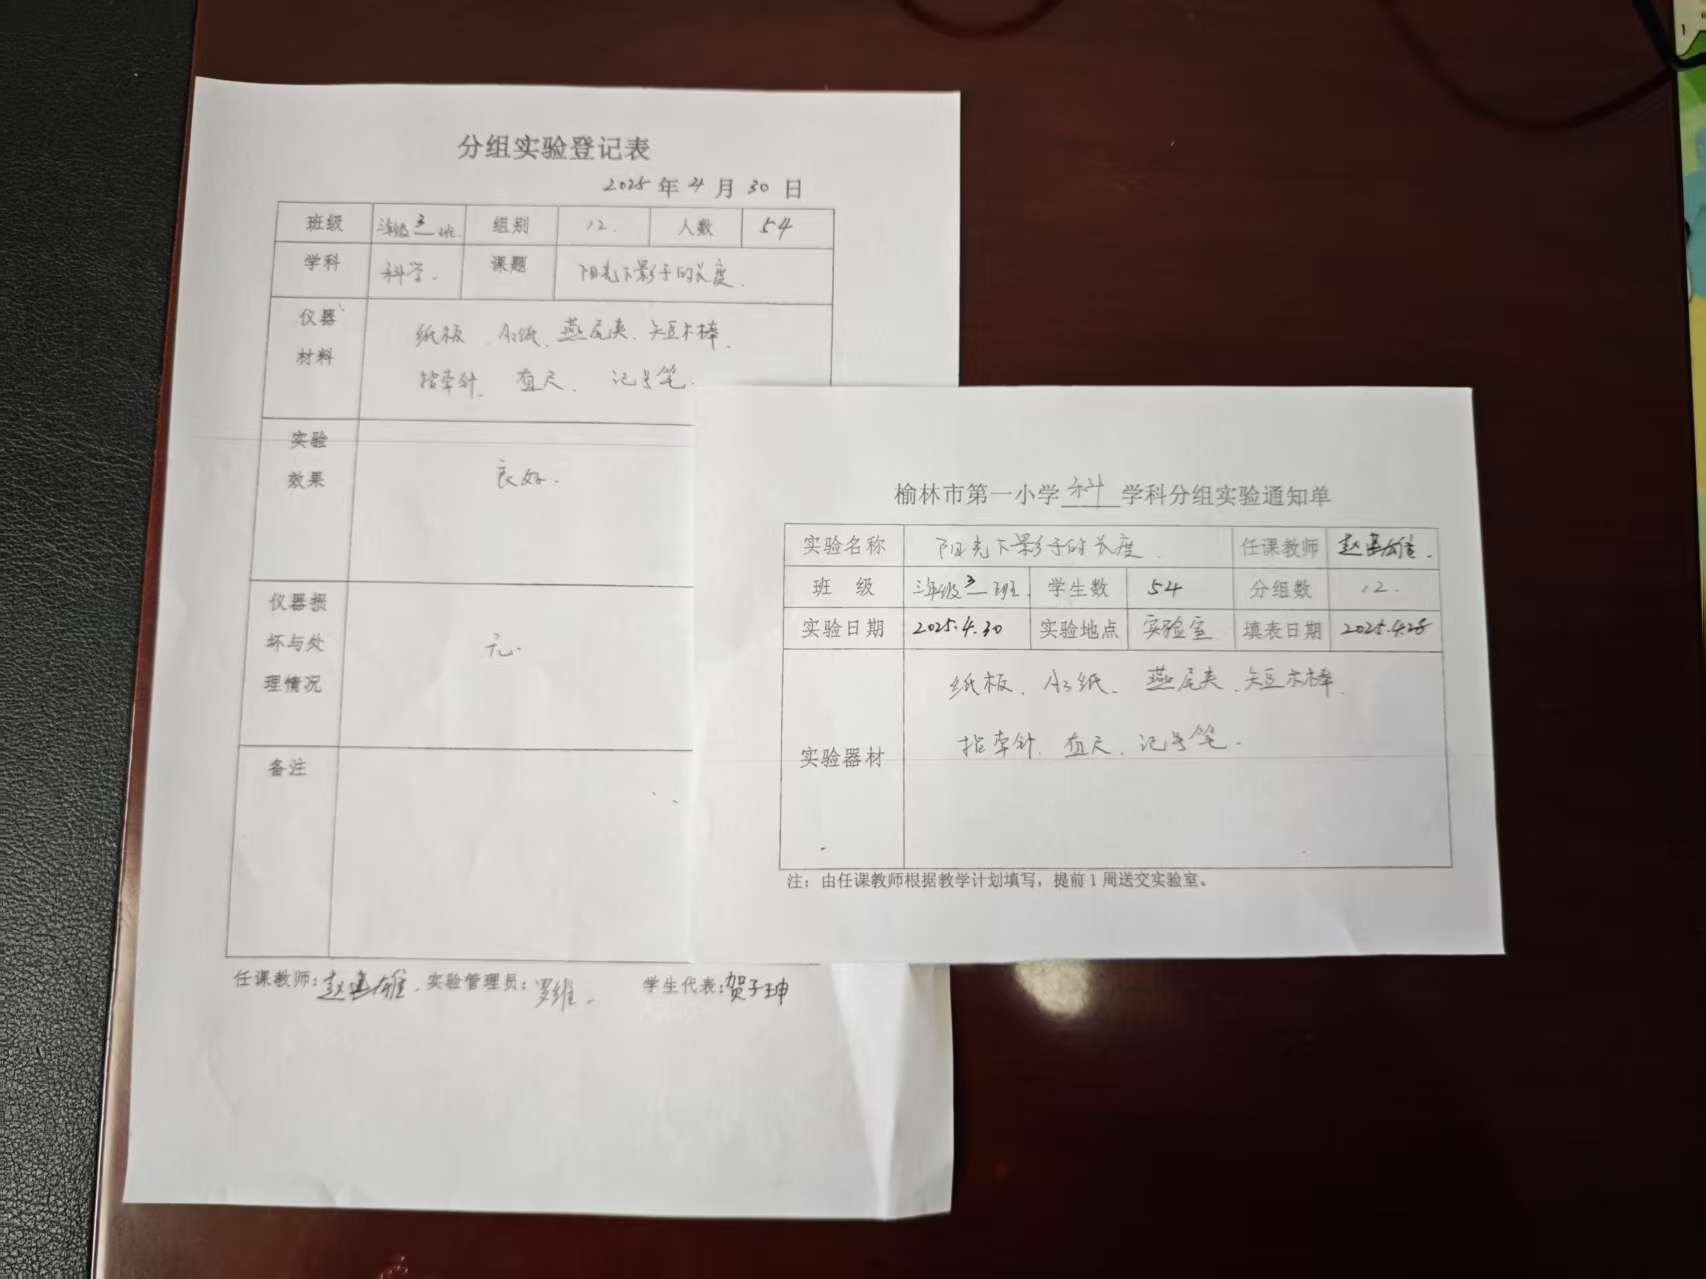 分组实验登记表
2025年4月30日
班级 三年级3班 组别 12. 人数 54
学科 科学. 课题 阳光下影子的长度.
仪器材料 纸板 A3纸、燕尾夹、短木棒、
指南针、直尺、记号笔.
实验效果 良好.
仪器损坏与处理情况 无.
备注
任课教师: 实验管理员:罗维. 学生代表:贺子珅
榆林市第一小学科学科分组实验通知单
实验名称 阳光下影子的长度. 任课教师
班级 三年级3班 学生数 54 分组数 12.
实验日期 2025.4.30 实验地点 实验室 填表日期 2025.4.28
实验器材 纸板、A3纸、燕尾夹、短木棒、
指南针、直尺、记号笔.
注：由任课教师根据教学计划填写，提前1周送交实验室。